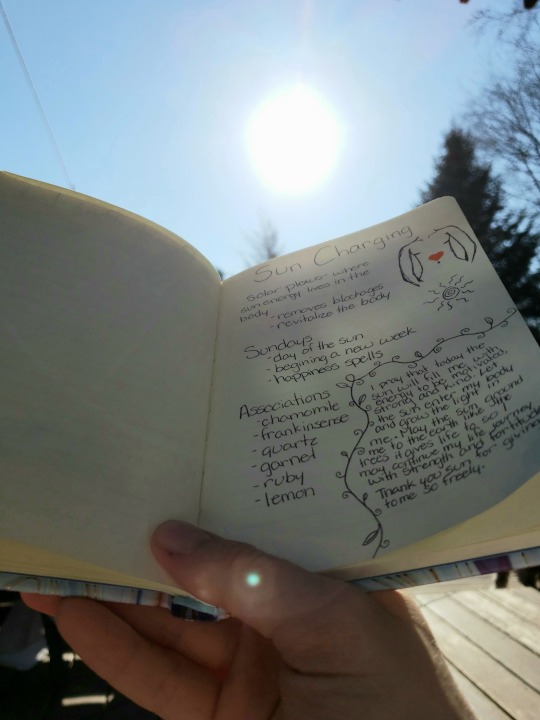 Sun Charging
solar plower where
sun energy lives in the
body
- removes blockages
- revitalize the body
Sundays
- day of the sun
- begining a new week
- happiness spells
Associations
- chamomile
- frankinsense
- quartz
- garnet
- ruby
- lemon
I pray that today the
sun will fill me with
energy to be motivated,
strong and kind. Let
the sun enter my body
and grow the light in
me. May the sun ground
me to the earth like the
trees it gives life to so I
may continue my life journey
with strength and fortitude
Thank you sun for giving
to me so freely.